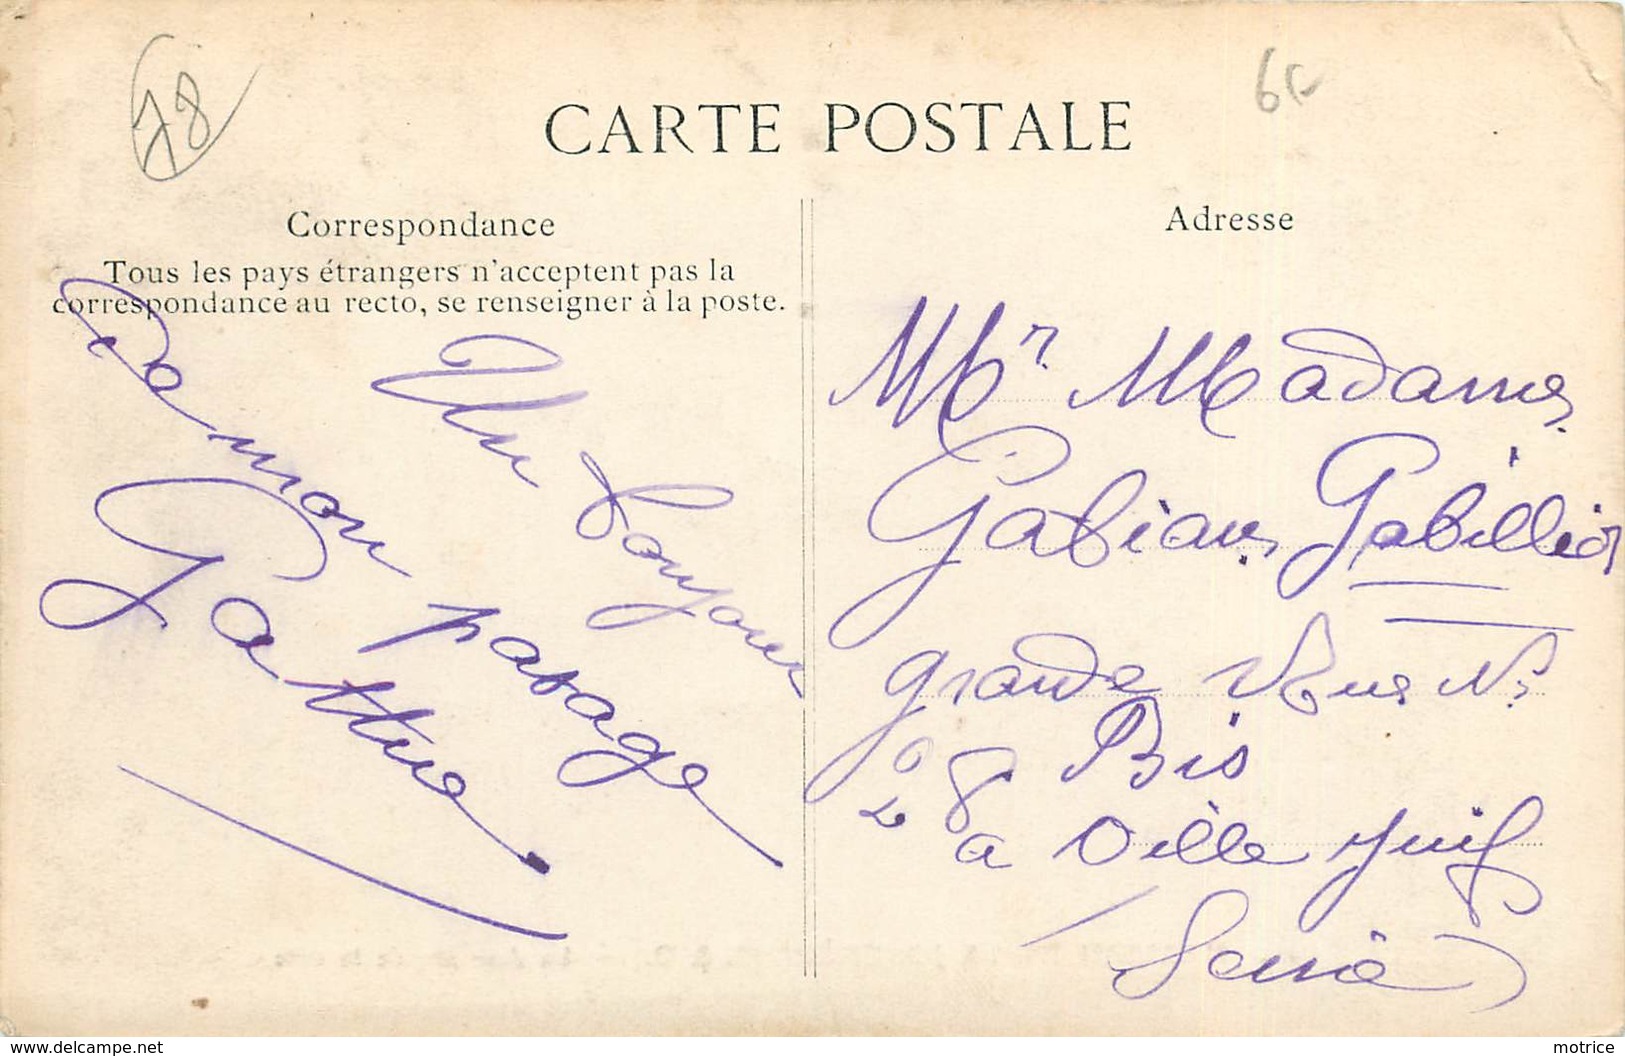 78
6€
CARTE POSTALE
Correspondance
Tous les pays étrangers n'acceptent pas la
correspondance au recto, se renseigner à la poste.
Un bonjour
de mon pasage
Adresse
Mr Madame
Gabian Gabillier
grande Rue No
28 Bis
a Ville juif
Seine
www.delcampe.net
motrice